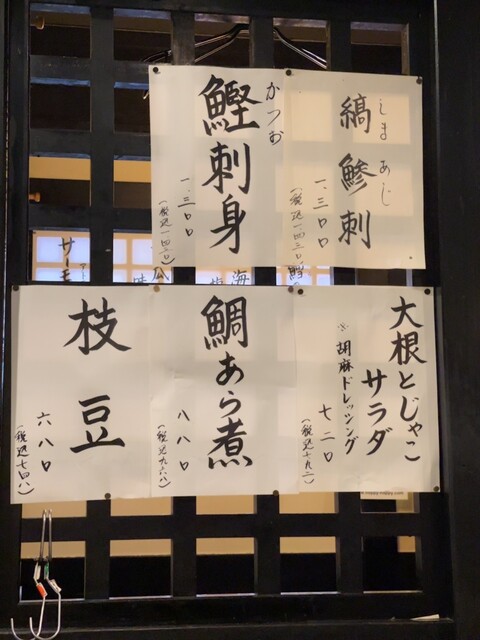 しまあじ
縞鯵刺
一、三〇〇
(税込一四三〇)
かつお
鰹刺身
一、三〇〇
(税込一四三〇)
大根とじゃこ
サラダ
※胡麻ドレッシング
七二〇
(税込七九二)
鯛あら煮
八八〇
(税込九六八)
枝豆
六八〇
(税込七四八)
海
瓜
サーモ